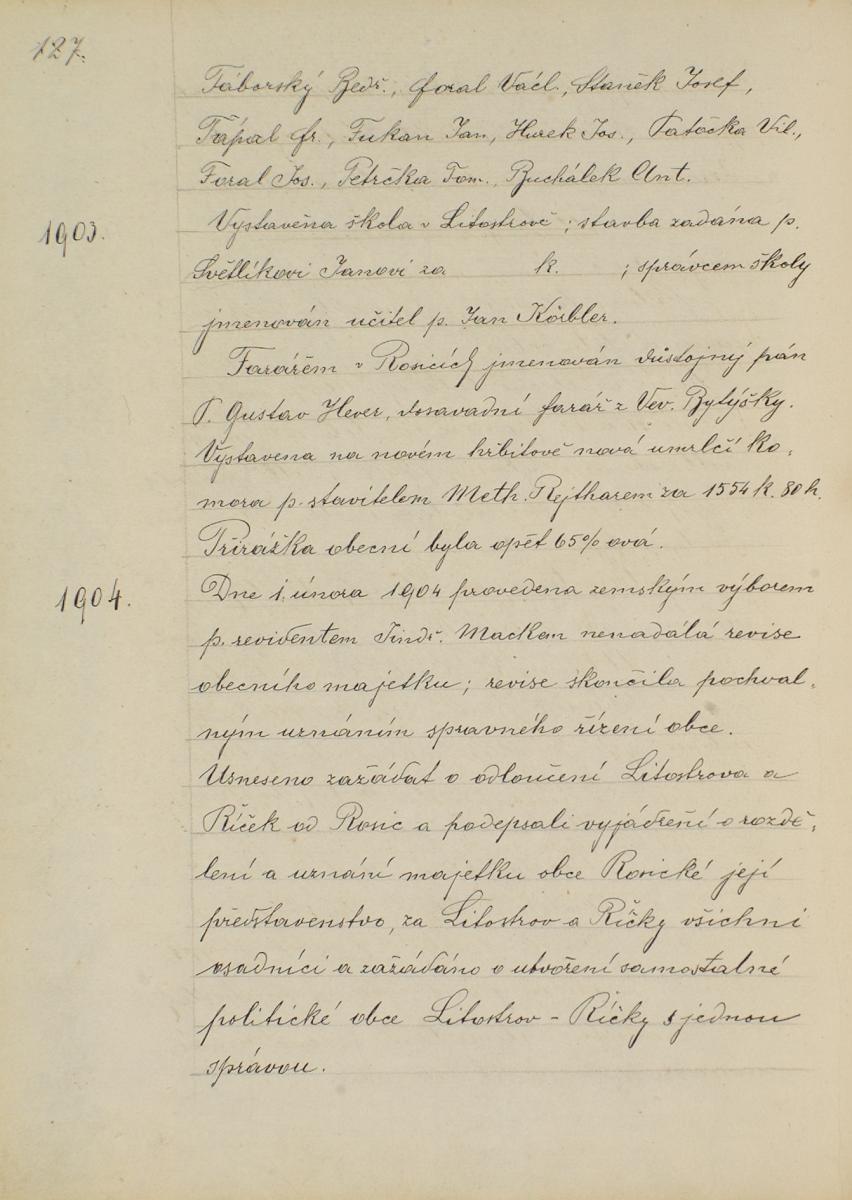 127.
Táborský Bedř., Foral Václ., Staněk Josef,
Ťápal Fr., Fukan Jan, Hurek Jos., Patočka Vil.,
Foral Jos., Petrčka Tom., Buchálek Ant.
1903.
Vystavěna škola v Litostrově; stavba zadána p.
Světlíkovi Janovi za k. ; správcem školy
jmenován učitel p. Jan Körbler.
Farářem v Rosicích jmenován důstojný pán
P. Gustav Hever, dosavadní farář z Vev. Bytýšky.
Vystavena na novém hřbitově nová umrlčí ko-
mora p. stavitelem Meth. Rejtharem za 1554 k. 80 h.
Přirážka obecní byla opět 65% ová.
1904.
Dne 1. února 1904 provedena zemským výborem
p. revidentem Jindř. Mackem nenadálá revise
obecního majetku; revise skončila pochval-
ným uznáním spravného řízení obce.
Usneseno zažádat o odloučení Litostrova a
Říček od Rosic a podepsali vyjádření o rozdě-
lení a uznání majetku obce Rosické její
představenstvo, za Litostrov a Říčky všichni
osadníci a zažádáno o utvoření samostalné
politické obce Litostrov - Říčky s jednou
správou.